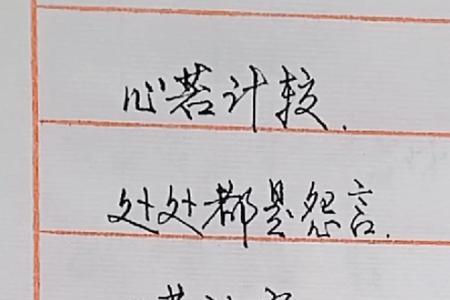 心若计较.
处处都是怨言.